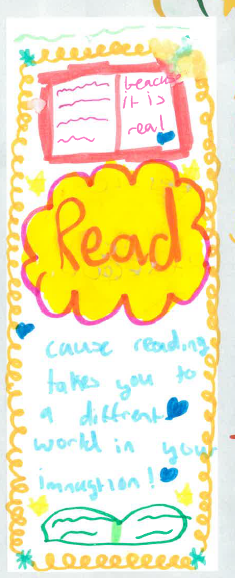 beacuse
it is
real
Read
cause reading
takes you to
a diffrent
world in your
imnagtion!